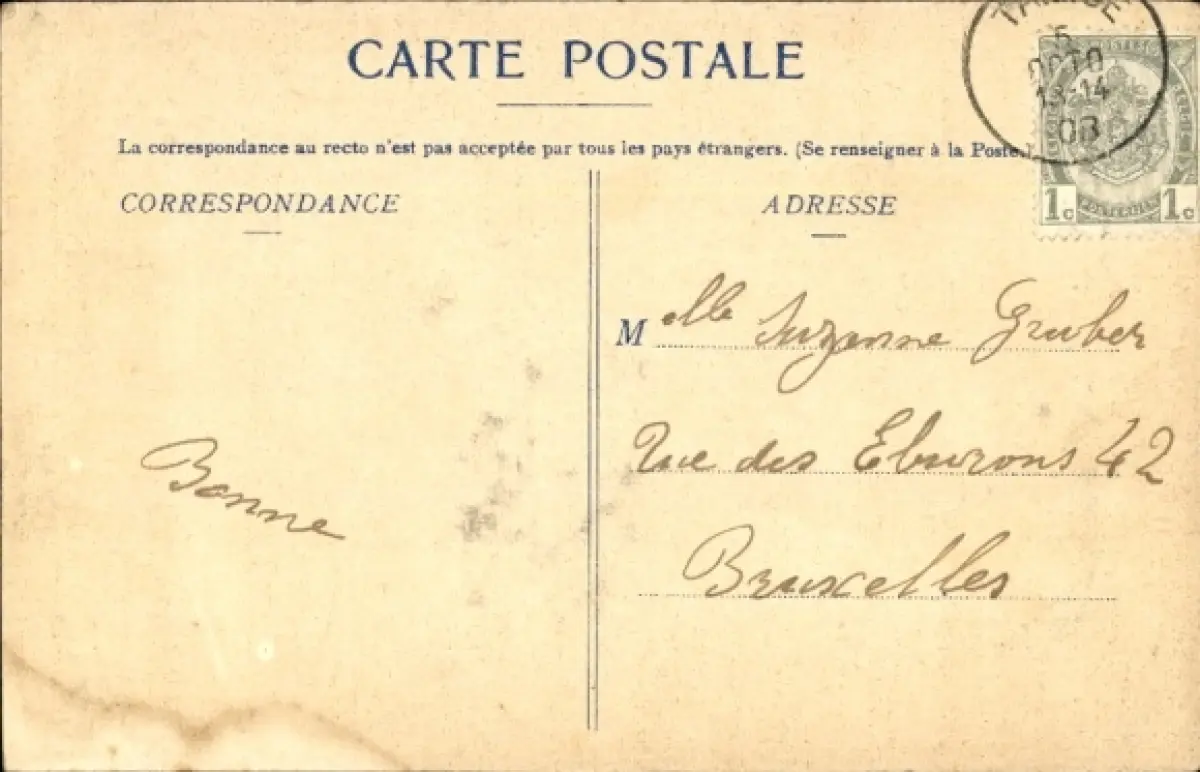 CARTE POSTALE
La correspondance au recto n'est pas acceptée par tous les pays étrangers. (Se renseigner à la Poste.)
CORRESPONDANCE
ADRESSE
Melle Suzanne Gruber
Rue des Eburons 42
Bruxelles
Bonne
TAMISE
5
OCTO
13-14
08
1c 1c